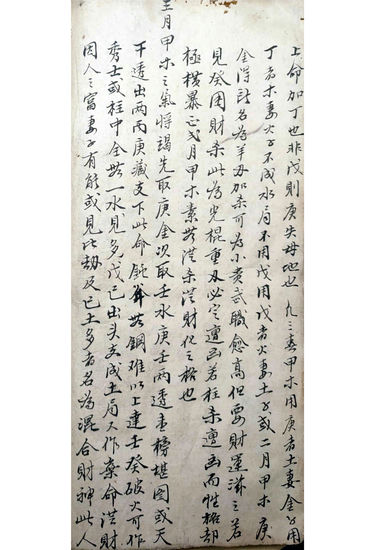 上命加丁也非戊則庚失母地也 凡三春甲木用庚者土妻金子用
丁者木妻火子不成水局不用戊用戊者火妻土子或二月甲木庚
金得所名為羊刃加杀可為小貴武職愈高但要財運滋之若
見癸困財杀此為光棍重刃必定遭凶若柱杀遭凶而性格部
極橫暴正弍月甲木素無從杀從財化之格也
三月甲木之氣將竭先取庚金次取壬水庚壬兩透榜堪图或天
下透出两丙庚藏支下此命鈍斧無鋼难以上達壬癸破火可作
秀士或柱中全無一水見多戊己出头支成土局又作棄命從財
因人之富妻子有能或見比劫及己土多者名為混合財神此人